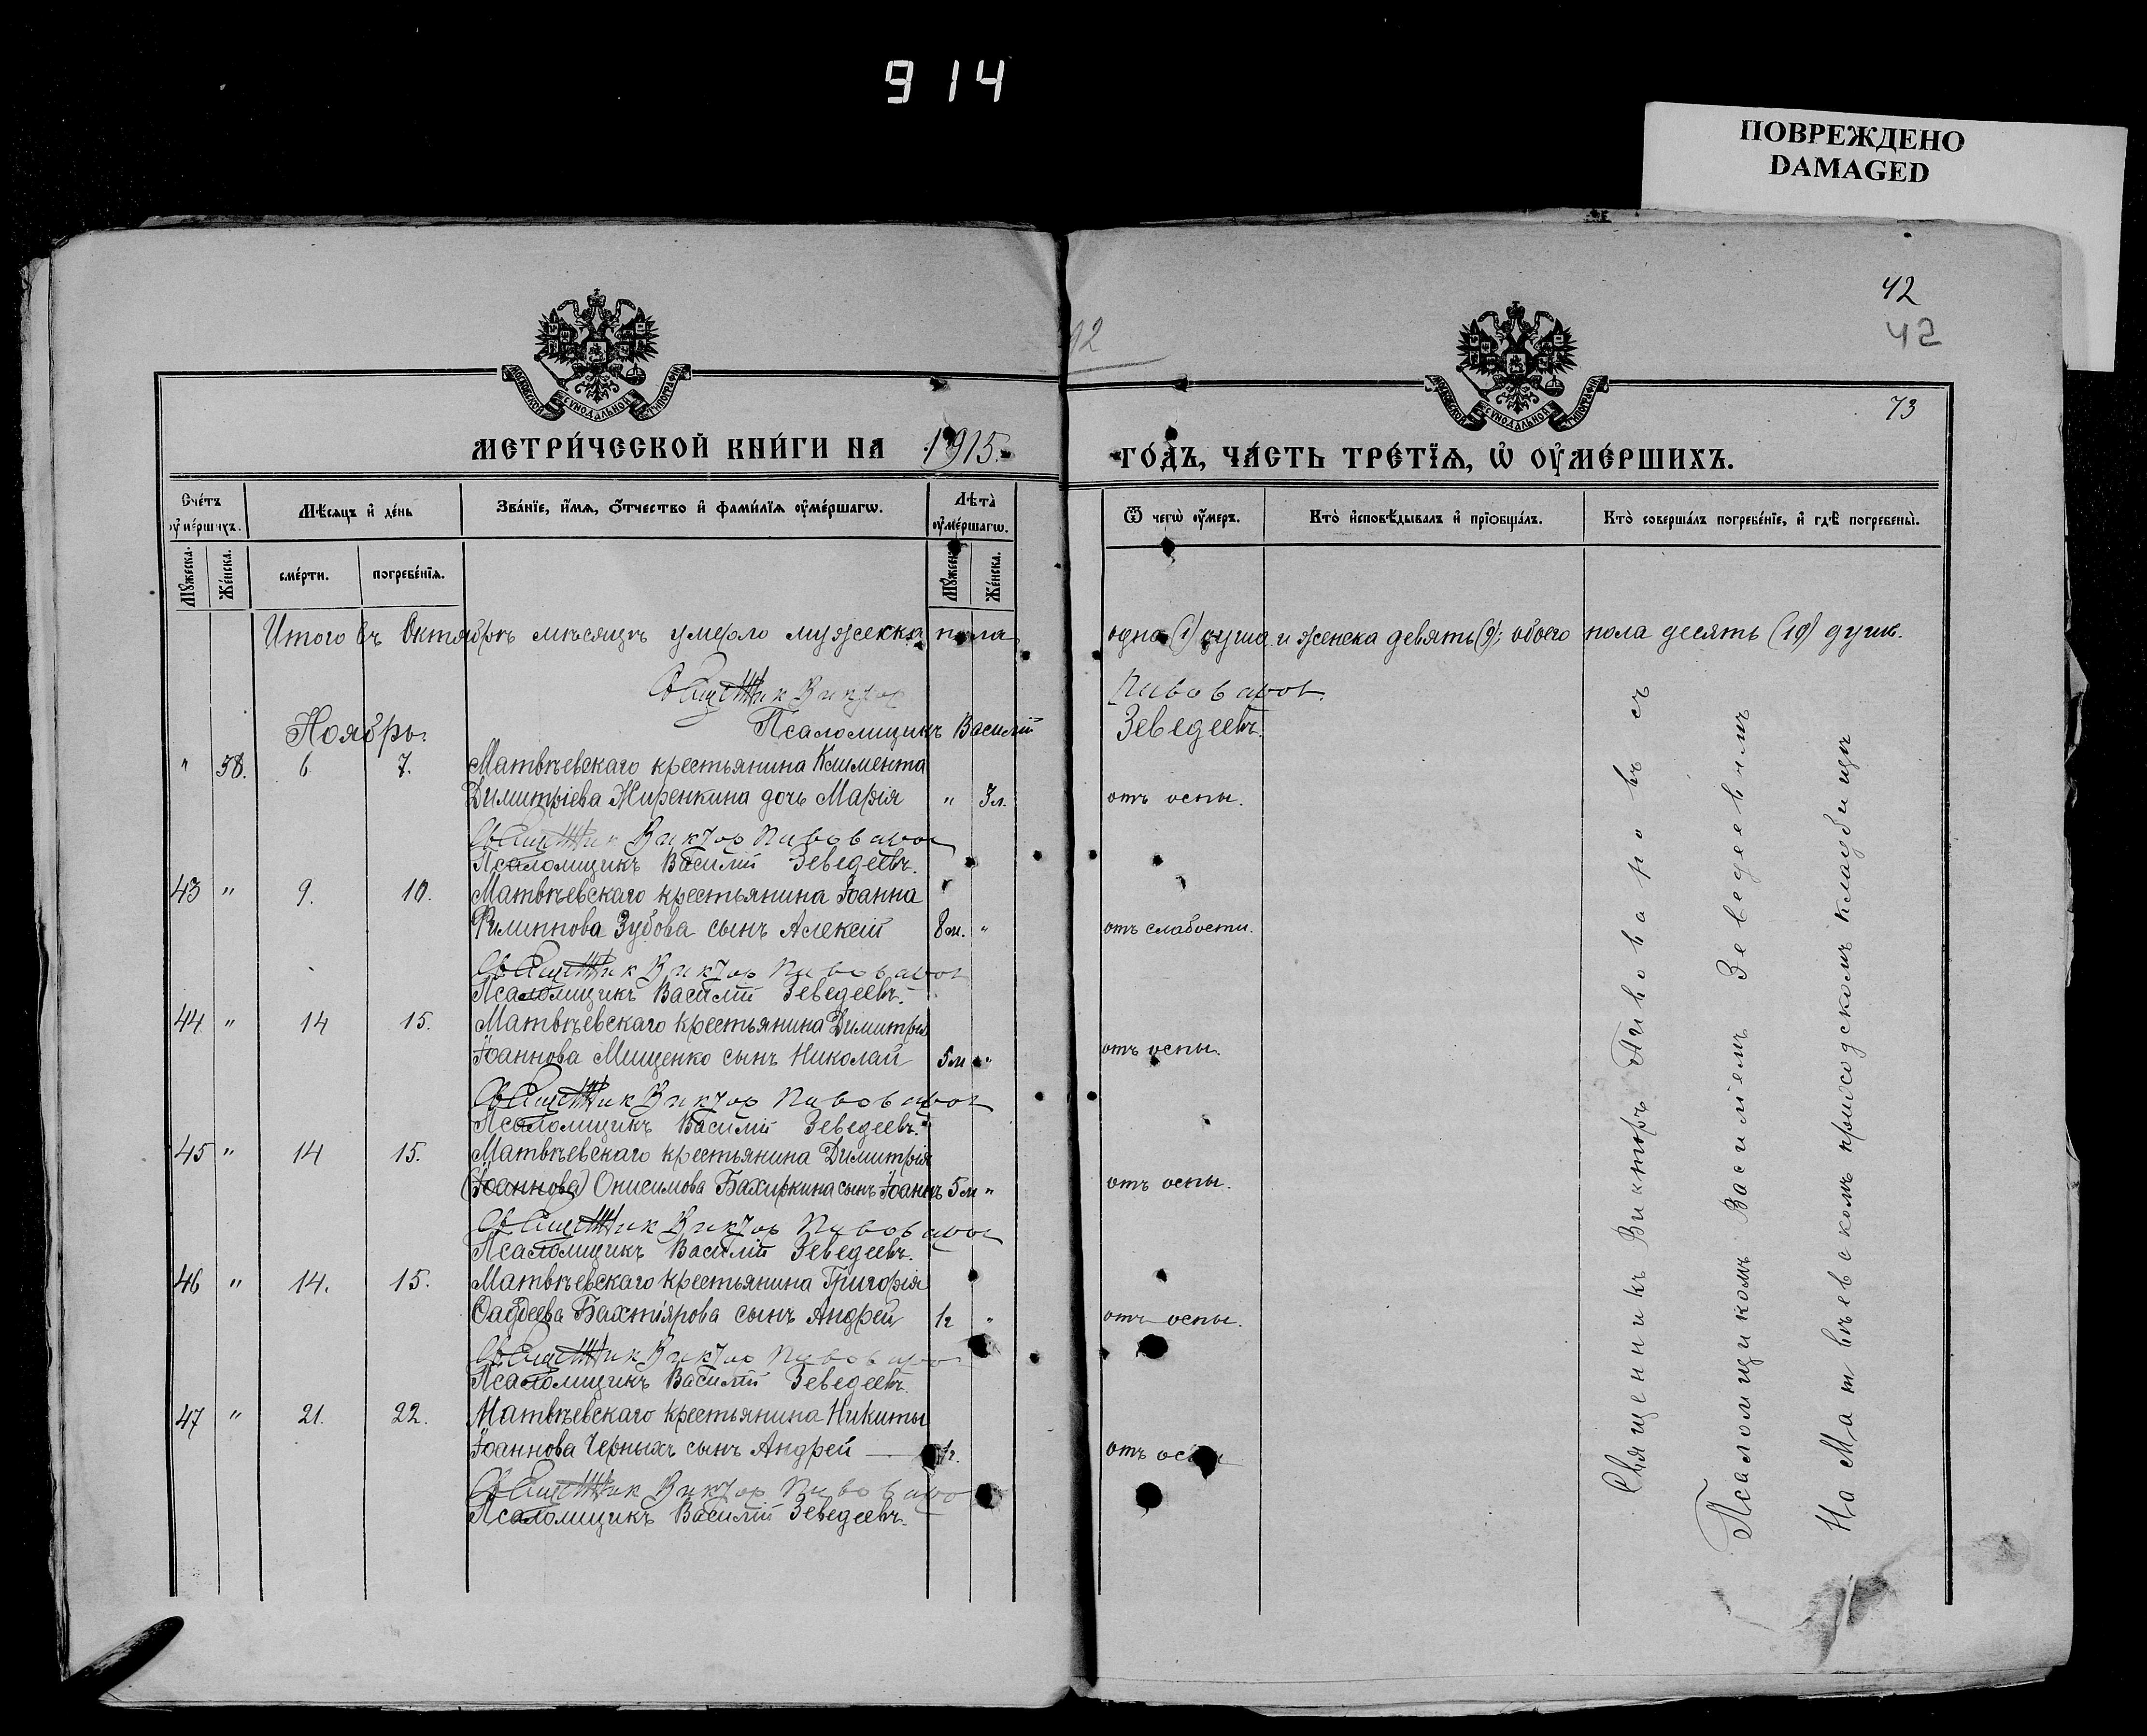 914
ПОВРЕЖДЕНО
DAMAGED
42
42
73
МОСКОВСКОЙ СУНОДАЛЬНОЙ ТИПОГРАФІИ
МОСКОВСКОЙ СУНОДАЛЬНОЙ ТИПОГРАФІИ
МЕТРИ́ЧЕСКОЙ КНИ́ГИ НА 1915.
ГО́ДЪ, ЧА́СТЬ ТРЕ́ТІѦ, Ѡ҆ ОУ҆МЕ́РШИХЪ.
Сче́тъ оу҆ме́ршихъ.
Мѣ́сяцъ и҆ де́нь
Зва́нїе, и҆́мѧ, ѻ҆́тчество и҆ фами́лїѧ оу҆ме́ршагѡ.
Лѣта̀ оу҆ме́ршагѡ.
Ѿ чегѡ̀ оу҆́меръ.
Кто̀ и҆сповѣ́дывалъ и҆ прїѡбща́лъ.
Кто̀ соверша́лъ погребе́нїе, и҆ гдѣ̀ погребены̀.
Мꙋ́жеска.
Же́нска.
сме́рти.
погребе́нїѧ.
Мꙋ́жеска.
Же́нска.
Итого въ Октябрѣ мѣсяцѣ умерло мужеска пола одна (1) душа и женска девять (9); обоего пола десять (10) душъ.
Священник Виктор Пивоваров.
Псаломщикъ Василій Зеведеевъ.
Ноябрь.
" 58. 6 7. Матвѣевскаго крестьянина Климента
Димитріева Жиренкина дочь Марія " 3 л. отъ оспы.
Священник Виктор Пивоваров
Псаломщикъ Василій Зеведеевъ.
43 " 9. 10. Матвѣевскаго крестьянина Іоанна
Филиппова Зубова сынъ Алексій 8 м. " отъ слабости.
Священник Виктор Пивоваров
Псаломщикъ Василій Зеведеевъ.
44 " 14 15. Матвѣевскаго крестьянина Димитрія
Іоаннова Мищенко сынъ Николай 5 м " отъ оспы.
Священник Виктор Пивоваров
Псаломщикъ Василій Зеведеевъ.
45 " 14 15. Матвѣевскаго крестьянина Димитрія
(Іоаннова) Онисимова Бахиркина сынъ Іоаннъ 5 м " отъ оспы.
Священник Виктор Пивоваров
Псаломщикъ Василій Зеведеевъ.
46 " 14. 15. Матвѣевскаго крестьянина Григорія
Фаддеева Бахтіярова сынъ Андрей 1 г " отъ оспы.
Священник Виктор Пивоваров
Псаломщикъ Василій Зеведеевъ.
47 " 21. 22. Матвѣевскаго крестьянина Никиты
Іоаннова Черныхъ сынъ Андрей — 1 г. отъ оспы
Священник Виктор Пивоваров
Псаломщикъ Василій Зеведеевъ.
Священникъ Викторъ Пивоваровъ съ
Псаломщикомъ Василіемъ Зеведеевымъ
На Матвѣевскомъ приходскомъ кладбищѣ